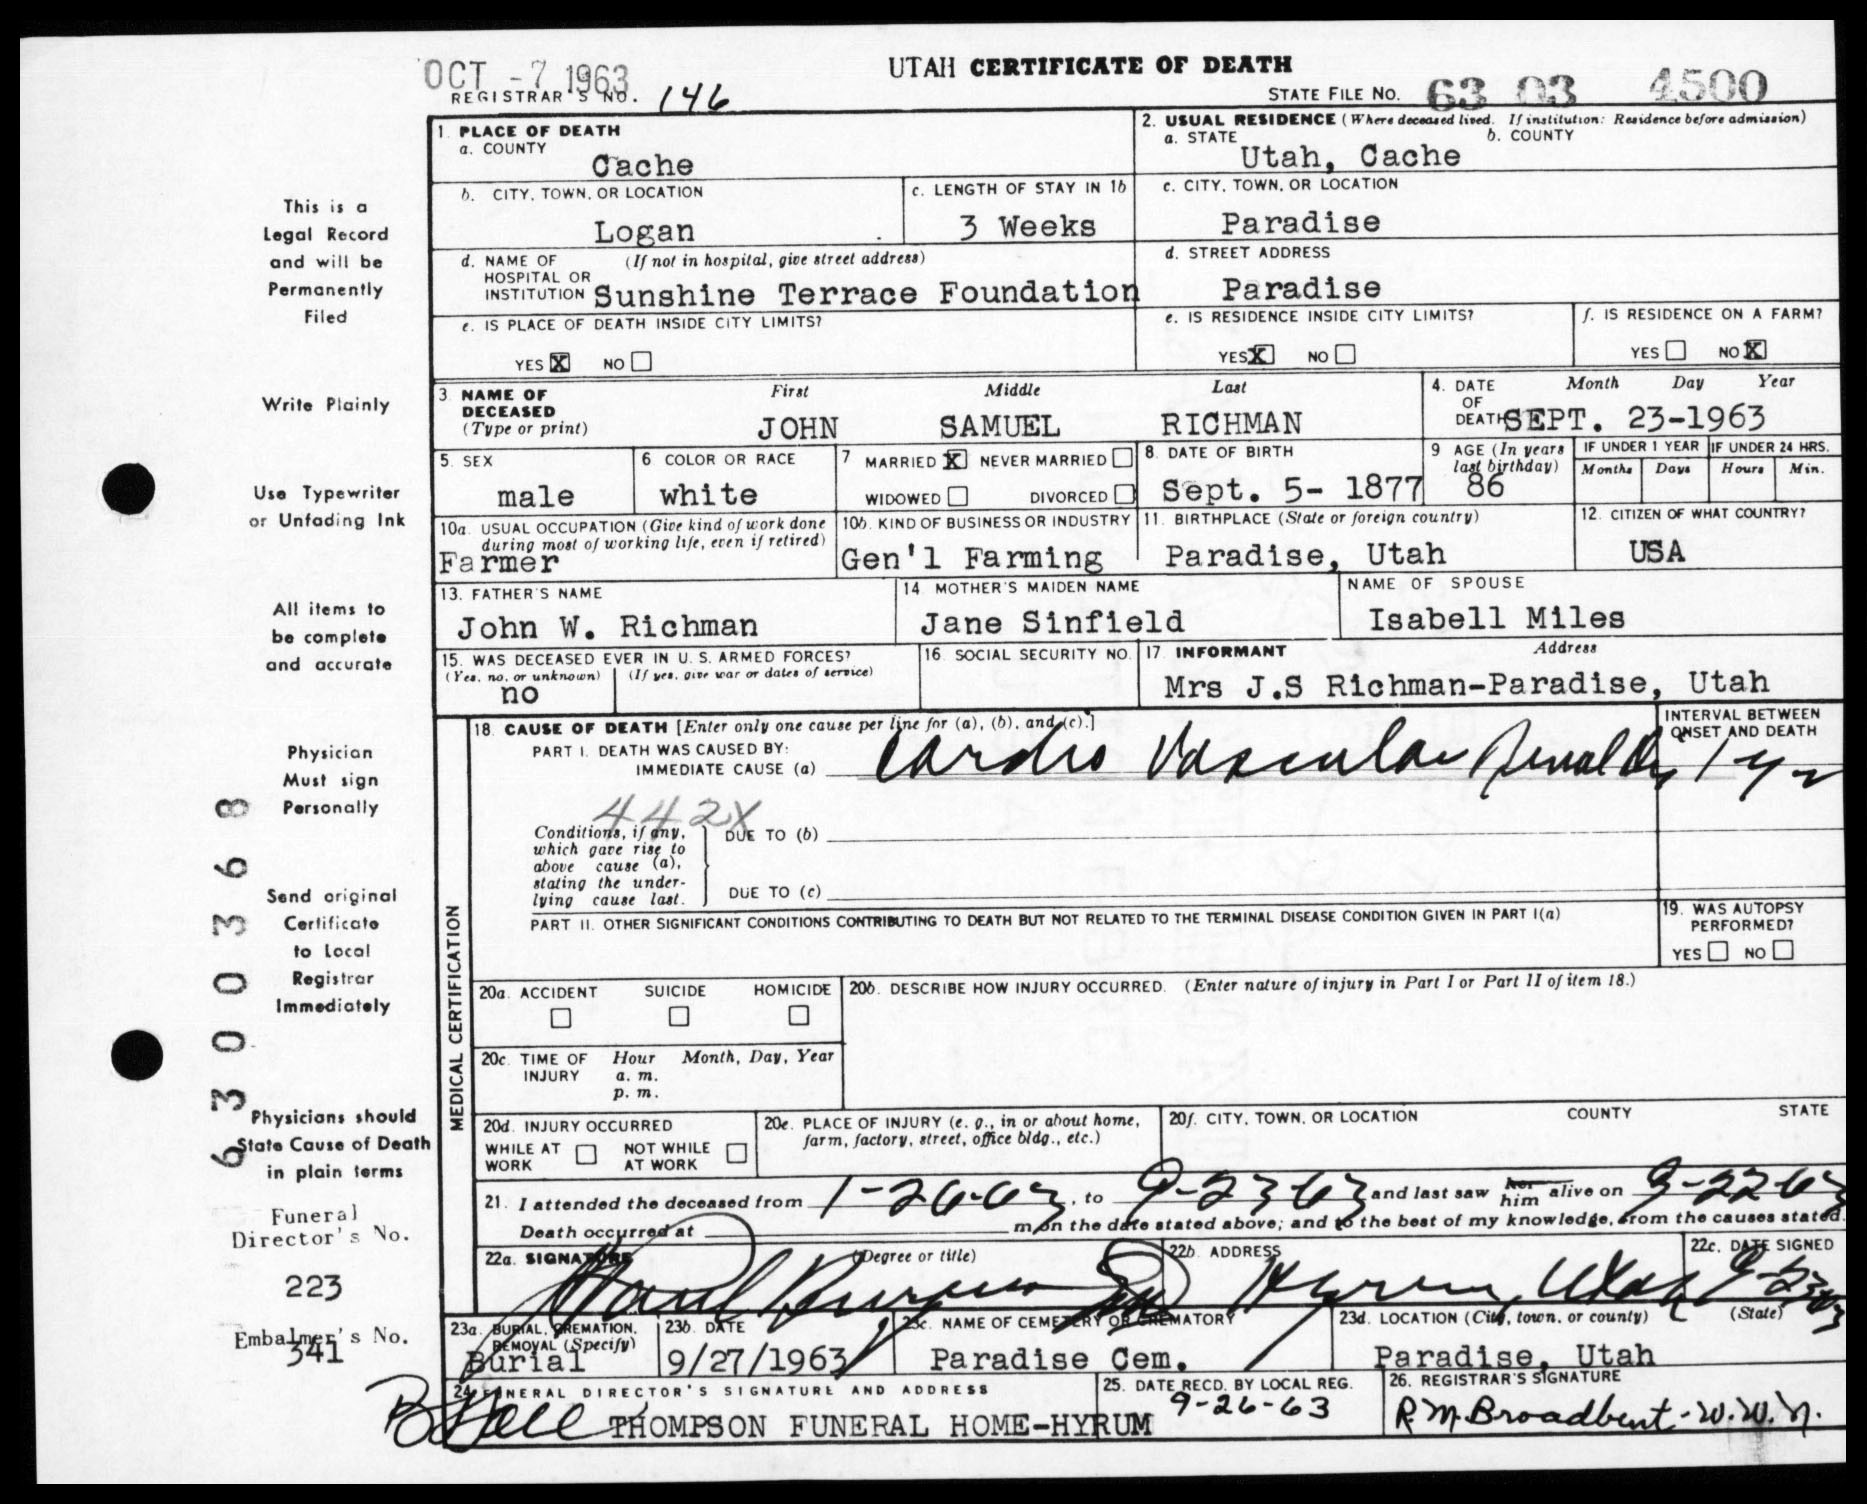 OCT -7 1963
UTAH CERTIFICATE OF DEATH
REGISTRAR'S NO. 146
STATE FILE NO. 63 03 4500
1. PLACE OF DEATH
a. COUNTY
Cache
2. USUAL RESIDENCE (Where deceased lived. If institution: Residence before admission)
a. STATE b. COUNTY
Utah, Cache
b. CITY, TOWN, OR LOCATION
Logan
c. LENGTH OF STAY IN 1b
3 Weeks
c. CITY, TOWN, OR LOCATION
Paradise
d. NAME OF (If not in hospital, give street address)
HOSPITAL OR
INSTITUTION Sunshine Terrace Foundation
d. STREET ADDRESS
Paradise
e. IS PLACE OF DEATH INSIDE CITY LIMITS?
YES X NO
e. IS RESIDENCE INSIDE CITY LIMITS?
YES X NO
f. IS RESIDENCE ON A FARM?
YES NO X
3. NAME OF DECEASED (Type or print)
First Middle Last
JOHN SAMUEL RICHMAN
4. DATE OF DEATH Month Day Year
SEPT. 23-1963
5. SEX
male
6 COLOR OR RACE
white
7 MARRIED X NEVER MARRIED
WIDOWED DIVORCED
8. DATE OF BIRTH
Sept. 5- 1877
9 AGE (In years last birthday)
86
IF UNDER 1 YEAR IF UNDER 24 HRS.
Months Days Hours Min.
10a. USUAL OCCUPATION (Give kind of work done during most of working life, even if retired)
Farmer
10b. KIND OF BUSINESS OR INDUSTRY
Gen'l Farming
11. BIRTHPLACE (State or foreign country)
Paradise, Utah
12. CITIZEN OF WHAT COUNTRY?
USA
13. FATHER'S NAME
John W. Richman
14. MOTHER'S MAIDEN NAME
Jane Sinfield
NAME OF SPOUSE
Isabell Miles
15. WAS DECEASED EVER IN U. S. ARMED FORCES?
(Yes, no, or unknown) (If yes, give war or dates of service)
no
16. SOCIAL SECURITY NO.
17. INFORMANT Address
Mrs J.S Richman-Paradise, Utah
18. CAUSE OF DEATH [Enter only one cause per line for (a), (b), and (c).]
PART I. DEATH WAS CAUSED BY:
IMMEDIATE CAUSE (a) Cardio Vascular Renal
INTERVAL BETWEEN
ONSET AND DEATH
1 yr
442X
Conditions, if any,
which gave rise to
above cause (a),
stating the under-
lying cause last.
DUE TO (b)
DUE TO (c)
PART II. OTHER SIGNIFICANT CONDITIONS CONTRIBUTING TO DEATH BUT NOT RELATED TO THE TERMINAL DISEASE CONDITION GIVEN IN PART I(a)
19. WAS AUTOPSY
PERFORMED?
YES NO
MEDICAL CERTIFICATION
20a. ACCIDENT SUICIDE HOMICIDE
20b. DESCRIBE HOW INJURY OCCURRED. (Enter nature of injury in Part I or Part II of item 18.)
20c. TIME OF INJURY Hour Month, Day, Year
a. m.
p. m.
20d. INJURY OCCURRED
WHILE AT WORK NOT WHILE AT WORK
20e. PLACE OF INJURY (e. g., in or about home,
farm, factory, street, office bldg., etc.)
20f. CITY, TOWN, OR LOCATION COUNTY STATE
21. I attended the deceased from 1-26-63, to 9-23-63 and last saw her him alive on 9-22-63
Death occurred at m., on the date stated above; and to the best of my knowledge, from the causes stated.
22a. SIGNATURE (Degree or title)
22b. ADDRESS
Hyrum, Utah
22c. DATE SIGNED
9-23-63
23a. BURIAL, CREMATION,
REMOVAL (Specify)
Burial
23b. DATE
9/27/1963
23c. NAME OF CEMETERY OR CREMATORY
Paradise Cem.
23d. LOCATION (City, town, or county) (State)
Paradise, Utah
24. FUNERAL DIRECTOR'S SIGNATURE AND ADDRESS
THOMPSON FUNERAL HOME-HYRUM
25. DATE RECD. BY LOCAL REG.
9-26-63
26. REGISTRAR'S SIGNATURE
R.M. Broadbent-W.W.N.
This is a
Legal Record
and will be
Permanently
Filed
Write Plainly
Use Typewriter
or Unfading Ink
All items to
be complete
and accurate
Physician
Must sign
Personally
Send original
Certificate
to Local
Registrar
Immediately
Physicians should
State Cause of Death
in plain terms
Funeral
Director's No.
223
Embalmer's No.
341
6300368